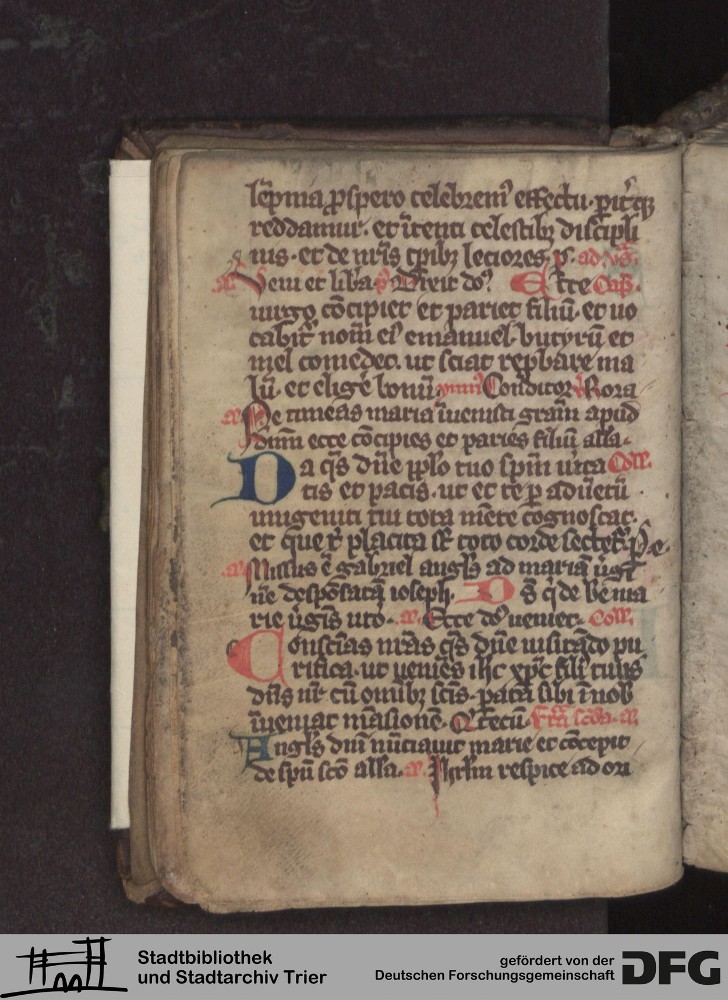 lēpnia ꝓspero celebrem⁹ effectu. ꝑit'q̃
reddamur. et ītenti celestibꝫ discipli
nis. et de nr̄is tꝑibꝫ lectores. p̄. ad. vs̄.
a. Veni et lib̄a. Dr̄eit do⁹. Ecce Cap̄.
uirgo cōcipiet et pariet filiū. et uo
cabit᷑ nom̄ ei⁹ emanuel. butyrū et
mel comedet. ut sciat reꝓbare ma
lū. et elige᷑ bonū. ymn⁹ Conditor v̄. Rora
a. Ne timeas maria īuenisti grām apud
dūm ecce cōcipies et paries filiū alla.
Da q̄s dn̄e pplo tuo spm̄ uīta Coll.
tis et pacis. ut et te ꝑ aduētū
unigeniti tui tota mēte cognoscat.
et que t' placita sūt toto corde sectet᷑. p̄.
a. Missus ē gabriel angl's ad mariā ūgi
nē despōsatā ioseph. Ds̄ q̇ de bēe ma
rie ūgīs utō. a. Ecce do⁹ ueniet. Coll.
Consciās nr̄as q̄s dn̄e uisitādo pu
rifica. ut ueniēs ihc xp̄c fili' tuus
dn̄s nr̄ cū om̄ibꝫ scīs. parata sibi ī nob̄
īueniat māsionē. Q̄ tecū. Fr̄ia scd̄a. a.
Angl's dn̄i nūciauit marie et cōcepit
de spū scō alla. a. Ihrlm respice ad ori
Stadtbibliothek
und Stadtarchiv Trier
gefördert von der
Deutschen Forschungsgemeinschaft
DFG